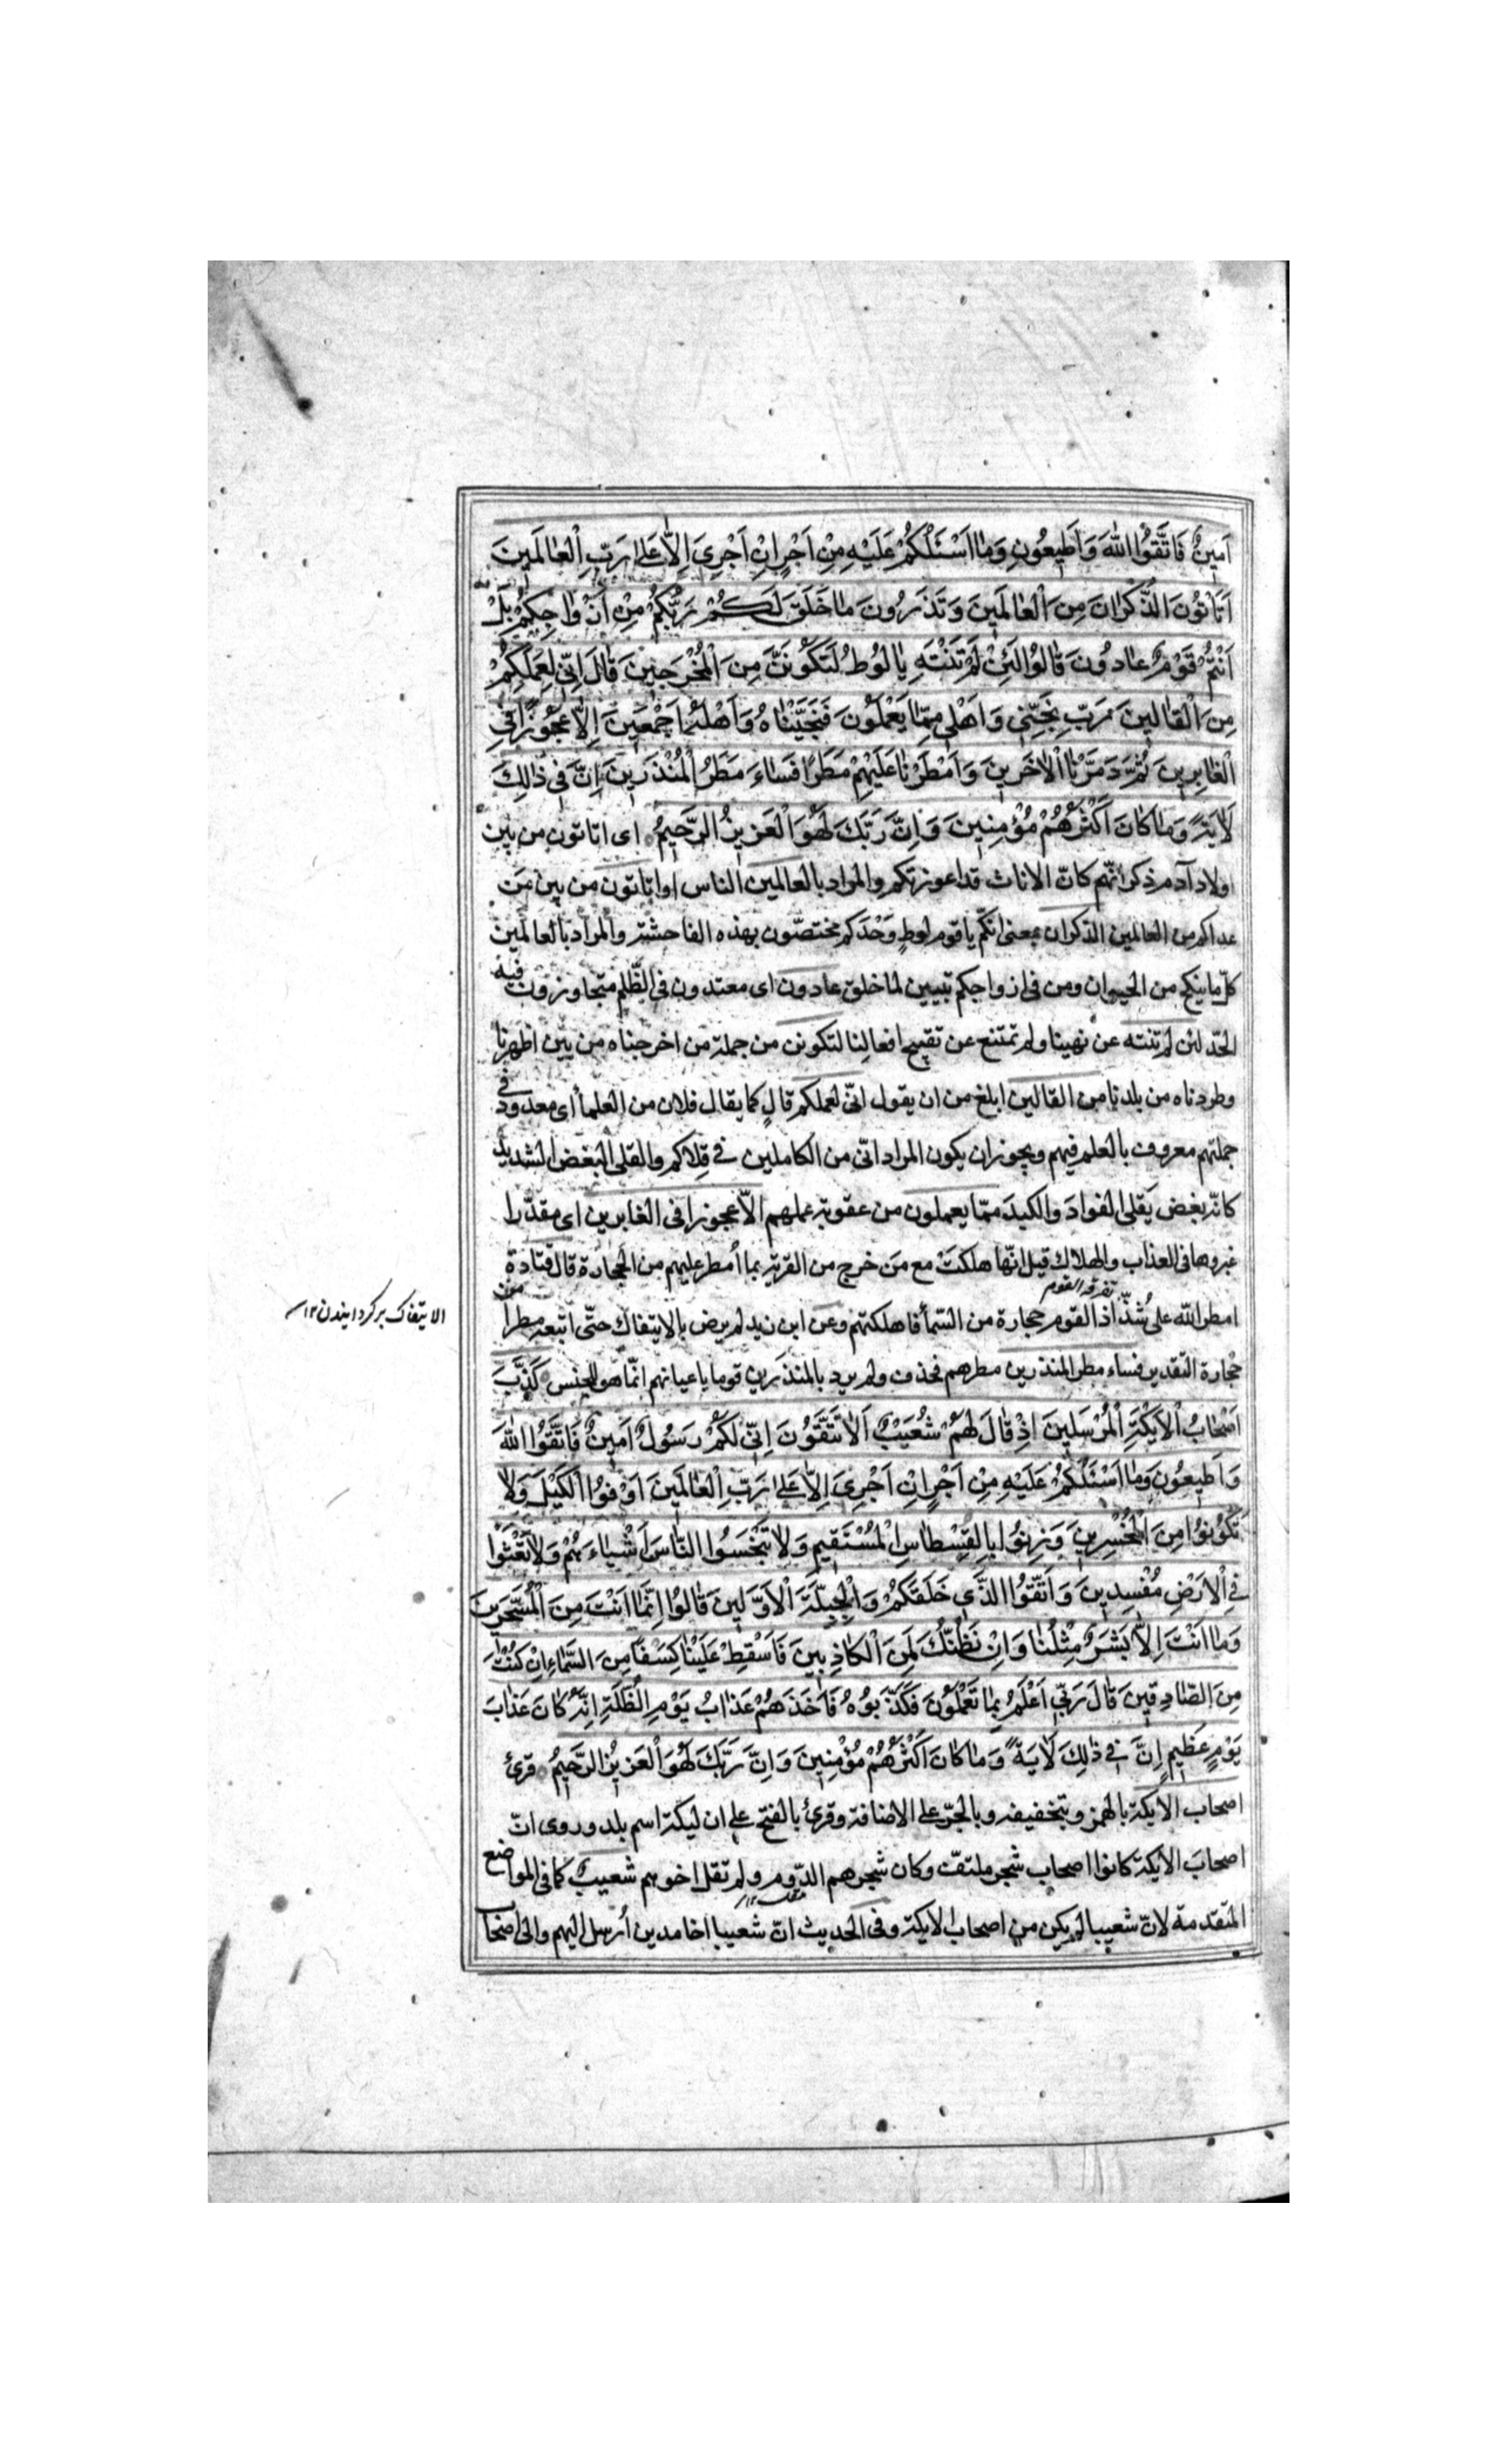 اَمِينٌ فَاتَّقُوا اللهَ وَاَطِيعُونِ وَمَا اَسْئَلُكُمْ عَلَيْهِ مِنْ اَجْرٍ اِنْ اَجْرِيَ اِلَّا عَلىٰ رَبِّ الْعٰالَمِينَ
اَتَأْتُونَ الذُّكْرٰانَ مِنَ الْعٰالَمِينَ وَتَذَرُونَ مٰا خَلَقَ لَكُمْ رَبُّكُمْ مِنْ اَزْوٰاجِكُمْ بَلْ
اَنْتُمْ قَوْمٌ عٰادُونَ قٰالُوا لَئِنْ لَمْ تَنْتَهِ يٰا لُوطُ لَتَكُونَنَّ مِنَ الْمُخْرَجِينَ قٰالَ اِنّي لِعَمَلِكُمْ
مِنَ الْقٰالِينَ رَبِّ نَجِّنِي وَاَهْلِي مِمّٰا يَعْمَلُونَ فَنَجَّيْنٰاهُ وَاَهْلَهُ اَجْمَعِينَ اِلّٰا عَجُوزًا فِي
الْغٰابِرِينَ ثُمَّ دَمَّرْنَا الْاٰخَرِينَ وَاَمْطَرْنٰا عَلَيْهِمْ مَطَرًا فَسٰاءَ مَطَرُ الْمُنْذَرِينَ اِنَّ فِي ذٰلِكَ
لَاٰيَةً وَمٰا كٰانَ اَكْثَرُهُمْ مُؤْمِنِينَ وَاِنَّ رَبَّكَ لَهُوَ الْعَزِيزُ الرَّحِيمُ اى اتاتون من بين
اولاد آدم ذكرانهم كانّ الاناث قد اعوزتكم والمراد بالعالمين الناس او اتاتون من بين من
عداكم من العالمين الذكران بمعنى انكم يا قوم لوط وَحْدَكم مختصّون بهذه الفاحشة والمراد بالعالمين
كلّ ما ينكح من الحيوان ومن فى ازواجكم تبيين لما خلق عادون اى معتدون فى الظّلم متجاوزون فيه
الحدّ لئن لم تنته عن نهينا ولم تمتنع عن تقبيح افعالنا لتكونن من جملة من اخرجناه من بين اظهرنا
وطردناه من بلدنا من القالين ابلغ من ان يقول انّى لعملكم قالٍ كما يقال فلان من العلمأ اى معدود فى
جملتهم معروف بالعلم فيهم ويجوز ان يكون المراد انّى من الكاملين فى قِلاكم والقلى البغض الشديد
كانّه بغض يَقلى الفوادَ والكبدَ ممّا يعملون من عقوبة عملهم الّا عجوزا فى الغابرين اى مقدّرا
غبورها فى العذاب والهلاك قيل انّها هلكتْ مع مَن خرج من القرية بما اُمطر عليهم من الحجارة قال قتادة
تفرقه القوم
امطر الله على شُذّاذ القوم حجارة من السّمأ فاهلكتهم وعن ابن زيد لم يرض بالايتفاك حتّى اتبعه مطرا من
الايتفاك بر گردانيدن ١٢
حجارة التقدير فساء مطر المنذرين مطرهم فحذف ولم يرد بالمنذرين قوما باعيانهم انّما هو للجنس كَذَّبَ
اَصْحٰابُ الْاَيْكَةِ الْمُرْسَلِينَ اِذْ قٰالَ لَهُمْ شُعَيْبٌ اَلٰا تَتَّقُونَ اِنّي لَكُمْ رَسُولٌ اَمِينٌ فَاتَّقُوا اللهَ
وَاَطِيعُونَ وَمٰا اَسْئَلُكُمْ عَلَيْهِ مِنْ اَجْرٍ اِنْ اَجْرِيَ اِلّٰا عَلىٰ رَبِّ الْعٰالَمِينَ اَوْفُوا الْكَيْلَ وَلٰا
تَكُونُوا مِنَ الْمُخْسِرِينَ وَزِنُوا بِالْقِسْطٰاسِ الْمُسْتَقِيمِ وَلٰا تَبْخَسُوا النّٰاسَ اَشْيٰاءَهُمْ وَلٰا تَعْثَوْا
فِي الْاَرْضِ مُفْسِدِينَ وَاتَّقُوا الَّذِي خَلَقَكُمْ وَالْجِبِلَّةَ الْاَوَّلِينَ قٰالُوا اِنَّمٰا اَنْتَ مِنَ الْمُسَحَّرِينَ
وَمٰا اَنْتَ اِلّٰا بَشَرٌ مِثْلُنٰا وَاِنْ نَظُنُّكَ لَمِنَ الْكٰاذِبِينَ فَاَسْقِطْ عَلَيْنٰا كِسَفًا مِنَ السَّمٰاءِ اِنْ كُنْتَ
مِنَ الصّٰادِقِينَ قٰالَ رَبِّي اَعْلَمُ بِمٰا تَعْمَلُونَ فَكَذَّبُوهُ فَاَخَذَهُمْ عَذٰابُ يَوْمِ الظُّلَّةِ اِنَّهُ كٰانَ عَذٰابَ
يَوْمٍ عَظِيمٍ اِنَّ فِي ذٰلِكَ لَاٰيَةً وَمٰا كٰانَ اَكْثَرُهُمْ مُؤْمِنِينَ وَاِنَّ رَبَّكَ لَهُوَ الْعَزِيزُ الرَّحِيمُ قرئ
اصحاب الايكة بالهمز وبتخفيفه وبالجرّ على الاضافة وقرئ بالفتح على ان ليكة اسم بلد وروى انّ
اصحابَ الايكة كانوا اصحاب شجر ملتفّ وكان شجرهم الدّوم ولم تقل اخوهم شعيب كما فى المواضع
المتقدمة لانّ شعيبا لم يكن من اصحاب الايكة وفى الحديث انّ شعيبا اخا مدين اُرسل اليهم والى اصحاب